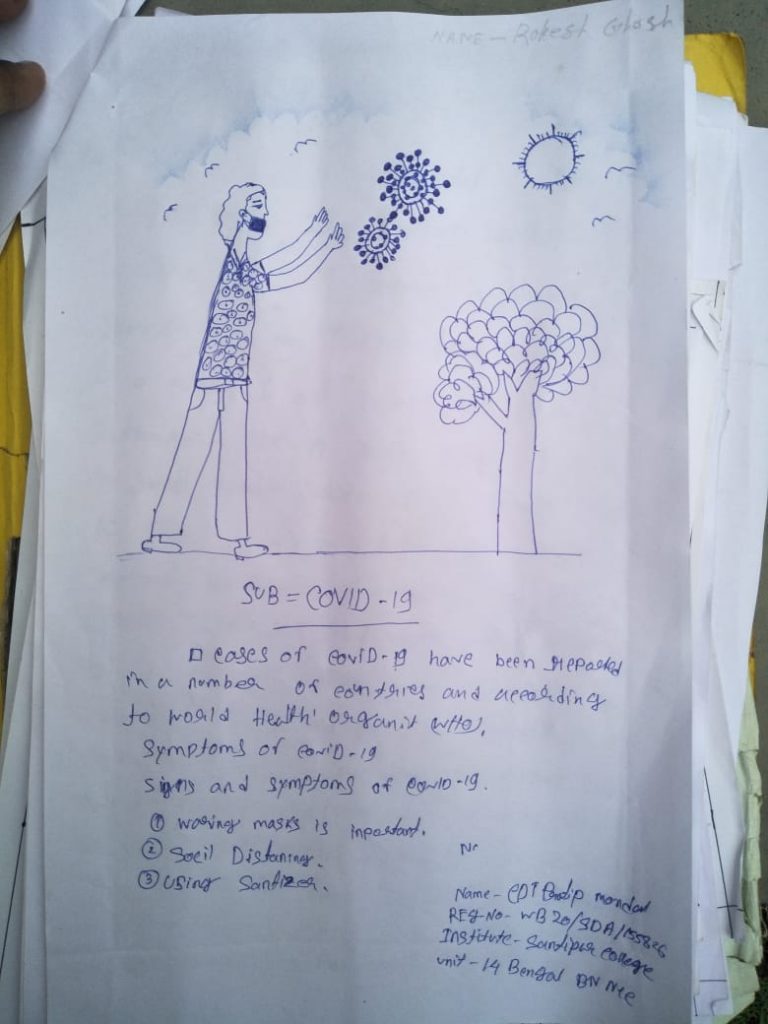 NAME - Rokest Ghosh
SUB = COVID-19
cases of coviD-19 have been reported
in a number of countries and according
to world Health organit (WHO).
symptoms of coviD-19
signs and symptoms of covID-19.
① waring masks is inportant.
② Socil Distaning.
③ Using Santizer.
Nc
Name - CDT mondal
REG-No- WB20/SDA/155826
Institute- Santipur college
unit - 14 Bengal BN Ncc